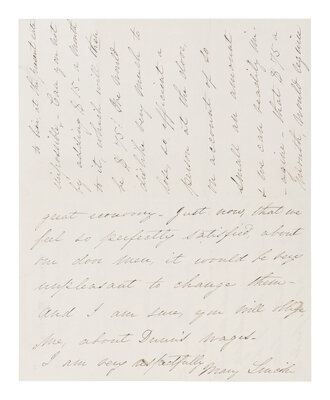 to live, at the present rate
impossible - Can you not
by adding $15 - a month
to it, which will then
be $75. We would
dislike very much to
lose, so efficient a
person at the door,
on account of so
small an amount
& we can readily im-
agine that $75 a
month, would require
great economy - Just now, that we
feel so perfectly satisfied, about
our door men, it would be very
unpleasant to change them -
And I am sure, you will oblige
me, about Dunn's wages -
I am very respectfully
Mary Lincoln